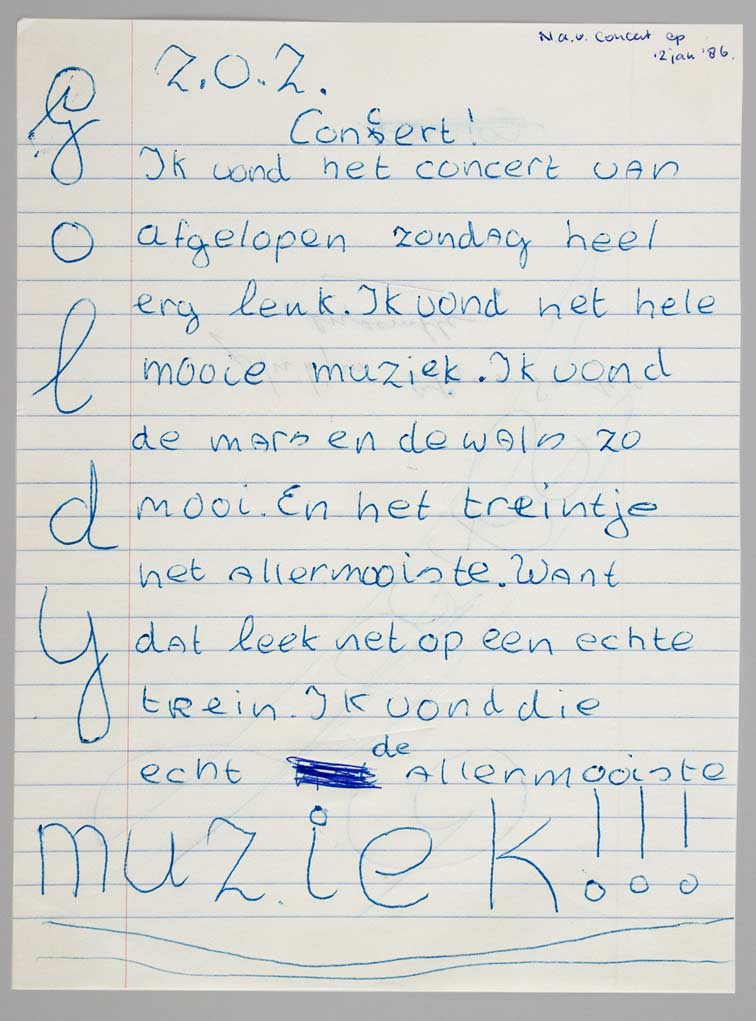 N.a.v. Concert op
12 jan '86.
Z.O.Z.
Concert!
Ik vond het concert van
afgelopen zondag heel
erg leuk. Ik vond het hele
mooie muziek. Ik vond
de mars en de wals zo
mooi. En het treintje
het allermooiste. Want
dat leek net op een echte
trein. Ik vond die
echt de allermooiste
muziek!!!
Goldy